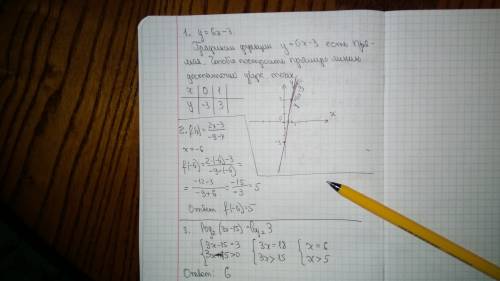 1. y=6x-3.
Графиком функции y=6x-3 есть пря-
мая. Чтобы построить прямую линию
достаточно двух точек.
x | 0 | 1
y | -3 | 3
y
x
0
-3
2. f(x)=(2x-3)/(-9-x)
x=-6
f(-6)=(2·(-6)-3)/(-9-(-6))=
=(-12-3)/(-9+6)=(-15)/(-3)=5
Ответ: f(-6)=5
3. log₂(3x-15)=log₂3
{3x-15=3 {3x=18 {x=6
{3x-15>0 {3x>15 {x>5
Ответ: 6